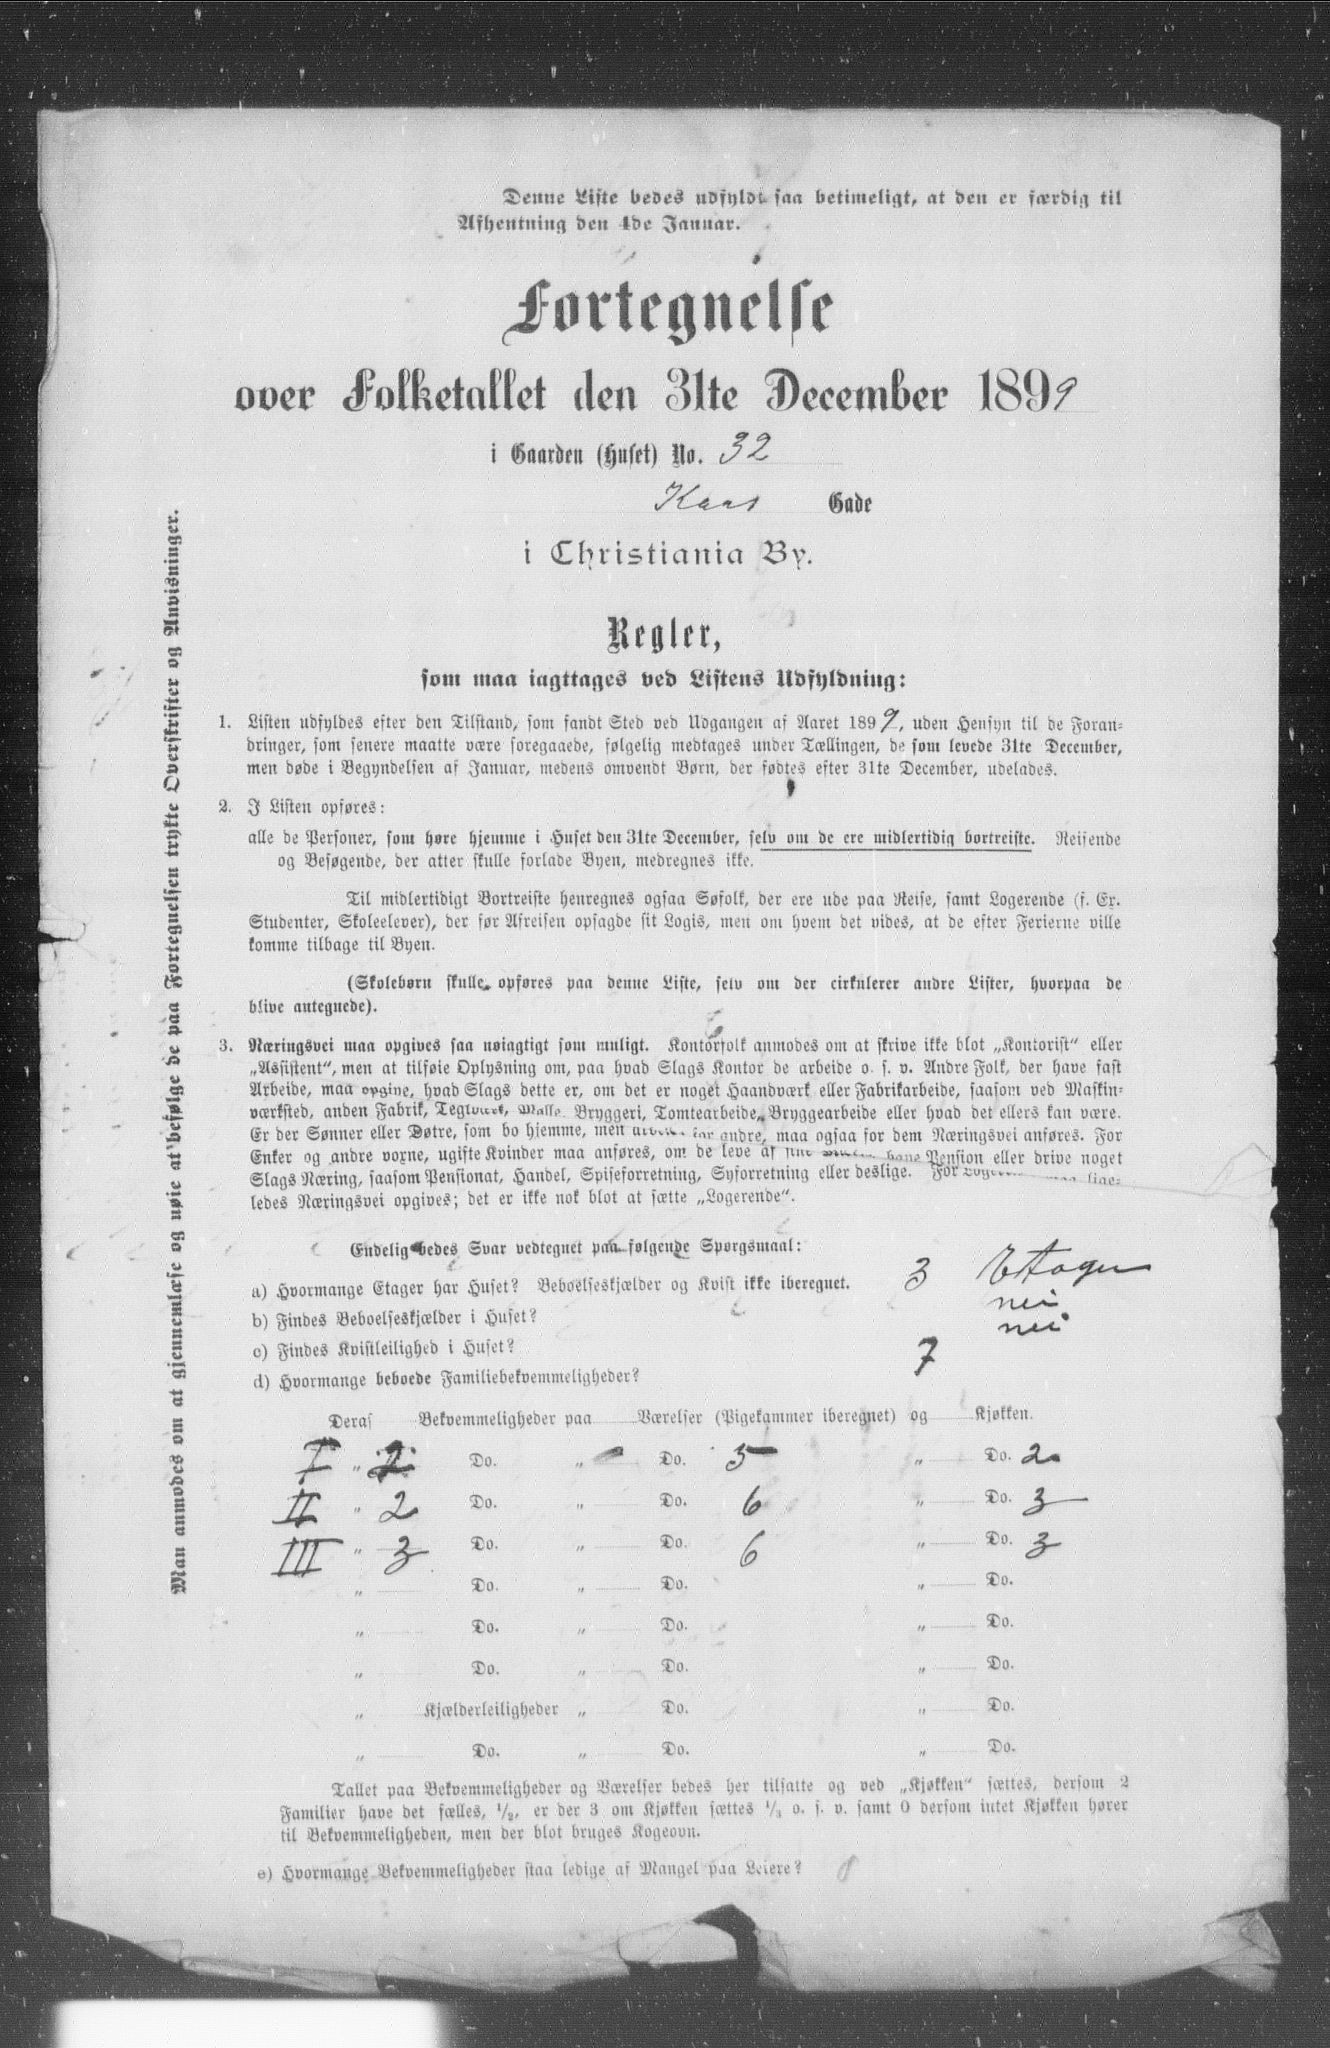 Denne Liste bedes udfyldt saa betimeligt, at den er færdig til
Afhentning den 4de Januar.
Fortegnelse
over Folketallet den 31te December 1899
i Gaarden (Huset) No. 32
Kaas Gade
i Christiania By.
Regler,
som maa iagttages ved Listens Udfyldning:
1. Listen udfyldes efter den Tilstand, som fandt Sted ved Udgangen af Aaret 1899, uden Hensyn til de Foran-
dringer, som senere maatte være foregaaede, følgelig medtages under Tællingen, de som levede 31te December,
men døde i Begyndelsen af Januar, medens omvendt Børn, der fødtes efter 31te December, udelades.
2. I Listen opføres:
alle de Personer, som høre hjemme i Huset den 31te December, selv om de ere midlertidig bortreiste. Reisende
og Besøgende, der atter skulle forlade Byen, medregnes ikke.
Til midlertidigt Bortreiste henregnes ogsaa Søfolk, der ere ude paa Reise, samt Logerende (f. Ex.
Studenter, Skoleelever), der før Afreisen opsagde sit Logis, men om hvem det vides, at de efter Ferierne ville
komme tilbage til Byen.
(Skolebørn skulle opføres paa denne Liste, selv om der cirkulerer andre Lister, hvorpaa de
blive antegnede).
3. Næringsvei maa opgives saa nøiagtigt som muligt. Kontorfolk anmodes om at skrive ikke blot „Kontorist“ eller
„Assistent“, men at tilføie Oplysning om, paa hvad Slags Kontor de arbeide o. s. v. Andre Folk, der have fast
Arbeide, maa opgive, hvad Slags dette er, om det er noget Haandværk eller Fabrikarbeide, saasom ved Maskin-
værksted, anden Fabrik, Teglværk, Mølle, Bryggeri, Tomtearbeide, Bryggearbeide eller hvad det ellers kan være.
Er der Sønner eller Døtre, som bo hjemme, men arbeide for andre, maa ogsaa for dem Næringsvei anføres. For
Enker og andre voxne, ugifte Kvinder maa anføres, om de leve af sine Midler, have Pension eller drive noget
Slags Næring, saasom Pensionat, Handel, Spiseforretning, Syforretning eller deslige. For Logerende maa lige-
ledes Næringsvei opgives; det er ikke nok blot at sætte „Logerende“.
Endelig bedes Svar vedtegnet paa følgende Spørgsmaal:
a) Hvormange Etager har Huset? Beboelseskjælder og Kvist ikke iberegnet. 3 Etager
b) Findes Beboelseskjælder i Huset? nei
c) Findes Kvistleilighed i Huset? nei
d) Hvormange beboede Familiebekvemmeligheder? 7
Deraf Bekvemmeligheder paa Værelser (Pigekammer iberegnet) og Kjøkken.
I „ 2 Do. „ Do. 5 „ Do. 2
II „ 2 Do. „ Do. 6 „ Do. 3
III „ 3 Do. „ Do. 6 „ Do. 3
„ Do. „ Do. „ Do.
„ Do. „ Do. „ Do.
„ Do. „ Do. „ Do.
„ Kjælderleiligheder „ Do. „ Do.
„ Do. „ Do. „ Do.
Tallet paa Bekvemmeligheder og Værelser bedes her tilsatte og ved „Kjøkken“ sættes, dersom 2
Familier have det fælles, 1/2, er der 3 om Kjøkken sættes 1/3 o. s. v. samt 0 dersom intet Kjøkken hører
til Bekvemmeligheden, men der blot bruges Kogeovn.
e) Hvormange Bekvemmeligheder staa ledige af Mangel paa Leiere?
Man anmodes om at gjennemlæse og nøie at befølge de paa Fortegnelsen trykte Overskrifter og Anvisninger.